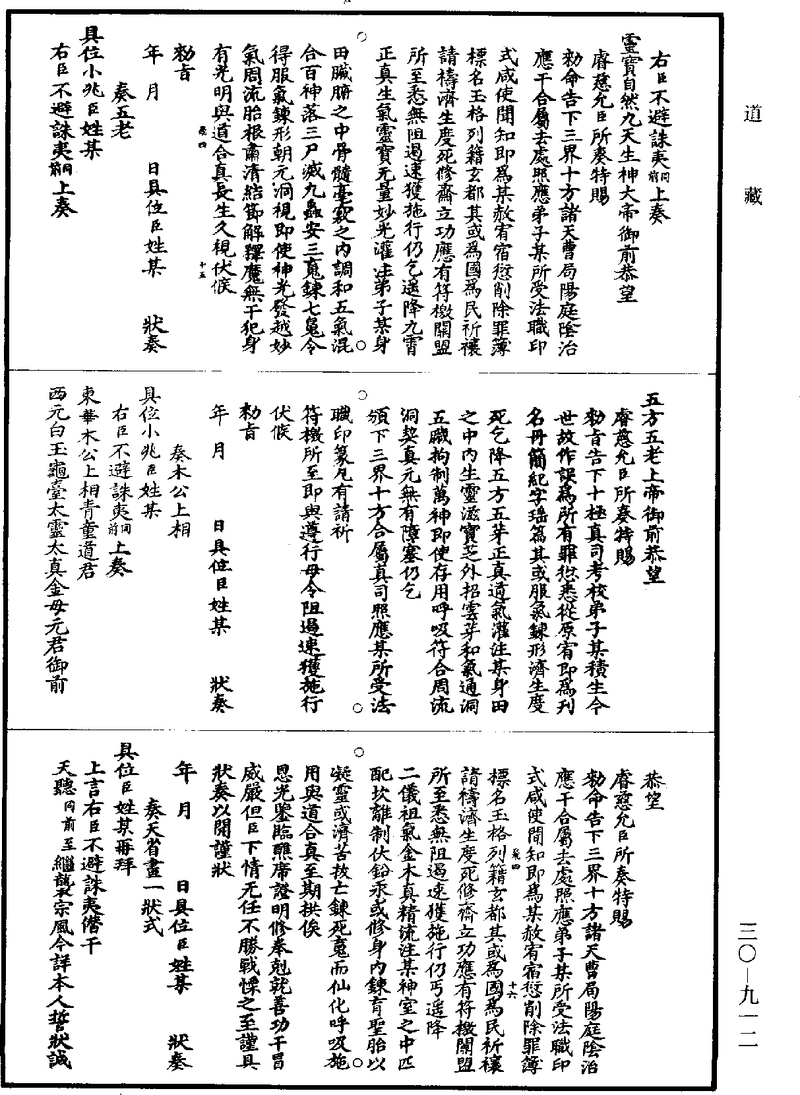 道藏
右臣不避誅夷同前上奏
靈寶自然九天生神大帝御前恭望
睿慈允臣所奏特賜
勑命告下三界十方諸天曹局陽庭陰治
應干合屬去處照應弟子某所受法職印
式咸使聞知即為某赦宥宿愆削除罪簿
標名玉格列籍玄都其或為國為民祈禳
請禱濟生度死修齋立功應有符檄關盟
所至悉無阻遏速獲施行仍乞遥降九霄
正真生氣靈寶无量妙光灌注弟子某身
田臟腑之中骨髓毫竅之内調和五氣混
合百神落三尸滅九蟲安三䰟鍊七魄令
得服氣鍊形朝元洞視即使神光發越妙
氣周流胎根肅清結節解釋魔無干犯身
有光明與道合真長生久視伏候
勑旨
年 月 日具位臣姓某 狀奏
奏五老
具位小兆臣姓某
右臣不避誅夷同前上奏
五方五老上帝御前恭望
睿慈允臣所奏特賜
勑旨告下十極真司考校弟子某積生今
世故作誤為所有罪愆悉從原宥即為列
名丹簡紀字瑶篇其或服氣鍊形濟生度
死乞降五方五芽正真道氣灌注某身田
之中内生靈滋寶芝外招雲芽和氣通洞
五臟拘制萬神即使存用呼吸符合周流
洞契真元無有障塞仍乞
頒下三界十方合屬真司照應某所受法
職印篆凡有請祈
符檄所至即與遵行毋令阻遏速獲施行
伏候
勑旨
年 月 日具位臣姓某 狀奏
奏木公上相
具位小兆臣姓某
右臣不避誅夷同前上奏
東華木公上相青童道君
西元白玉龜臺太靈太真金母元君御前
恭望
睿慈允臣所奏特賜
勑命告下三界十方諸天曹局陽庭陰治
應干合屬去處照應弟子某所受法職印
式咸使聞知即為某赦宥宿愆削除罪簿
標名玉格列籍玄都其或為國為民祈禳
請禱濟生度死修齋立功應有符檄關盟
所至悉無阻遏速獲施行仍丐遥降
二儀祖氣金木真精流注某神室之中匹
配坎離制伏鉛汞或修身内鍊育聖胎以
凝靈或濟苦拔亡鍊死䰟而仙化呼吸施
用與道合真至期拱俟
恩光鑒臨醮席證明修奉剋就善功干冒
威嚴但臣下情无任不勝戰慄之至謹具
狀奏以聞謹狀
年 月 日具位臣姓某 狀奏
奏天省畫一狀式
具位臣姓某再拜
上言右臣不避誅夷僭干
天聽同前至繼襲宗風今詳本人誓狀誠
三〇—九一二